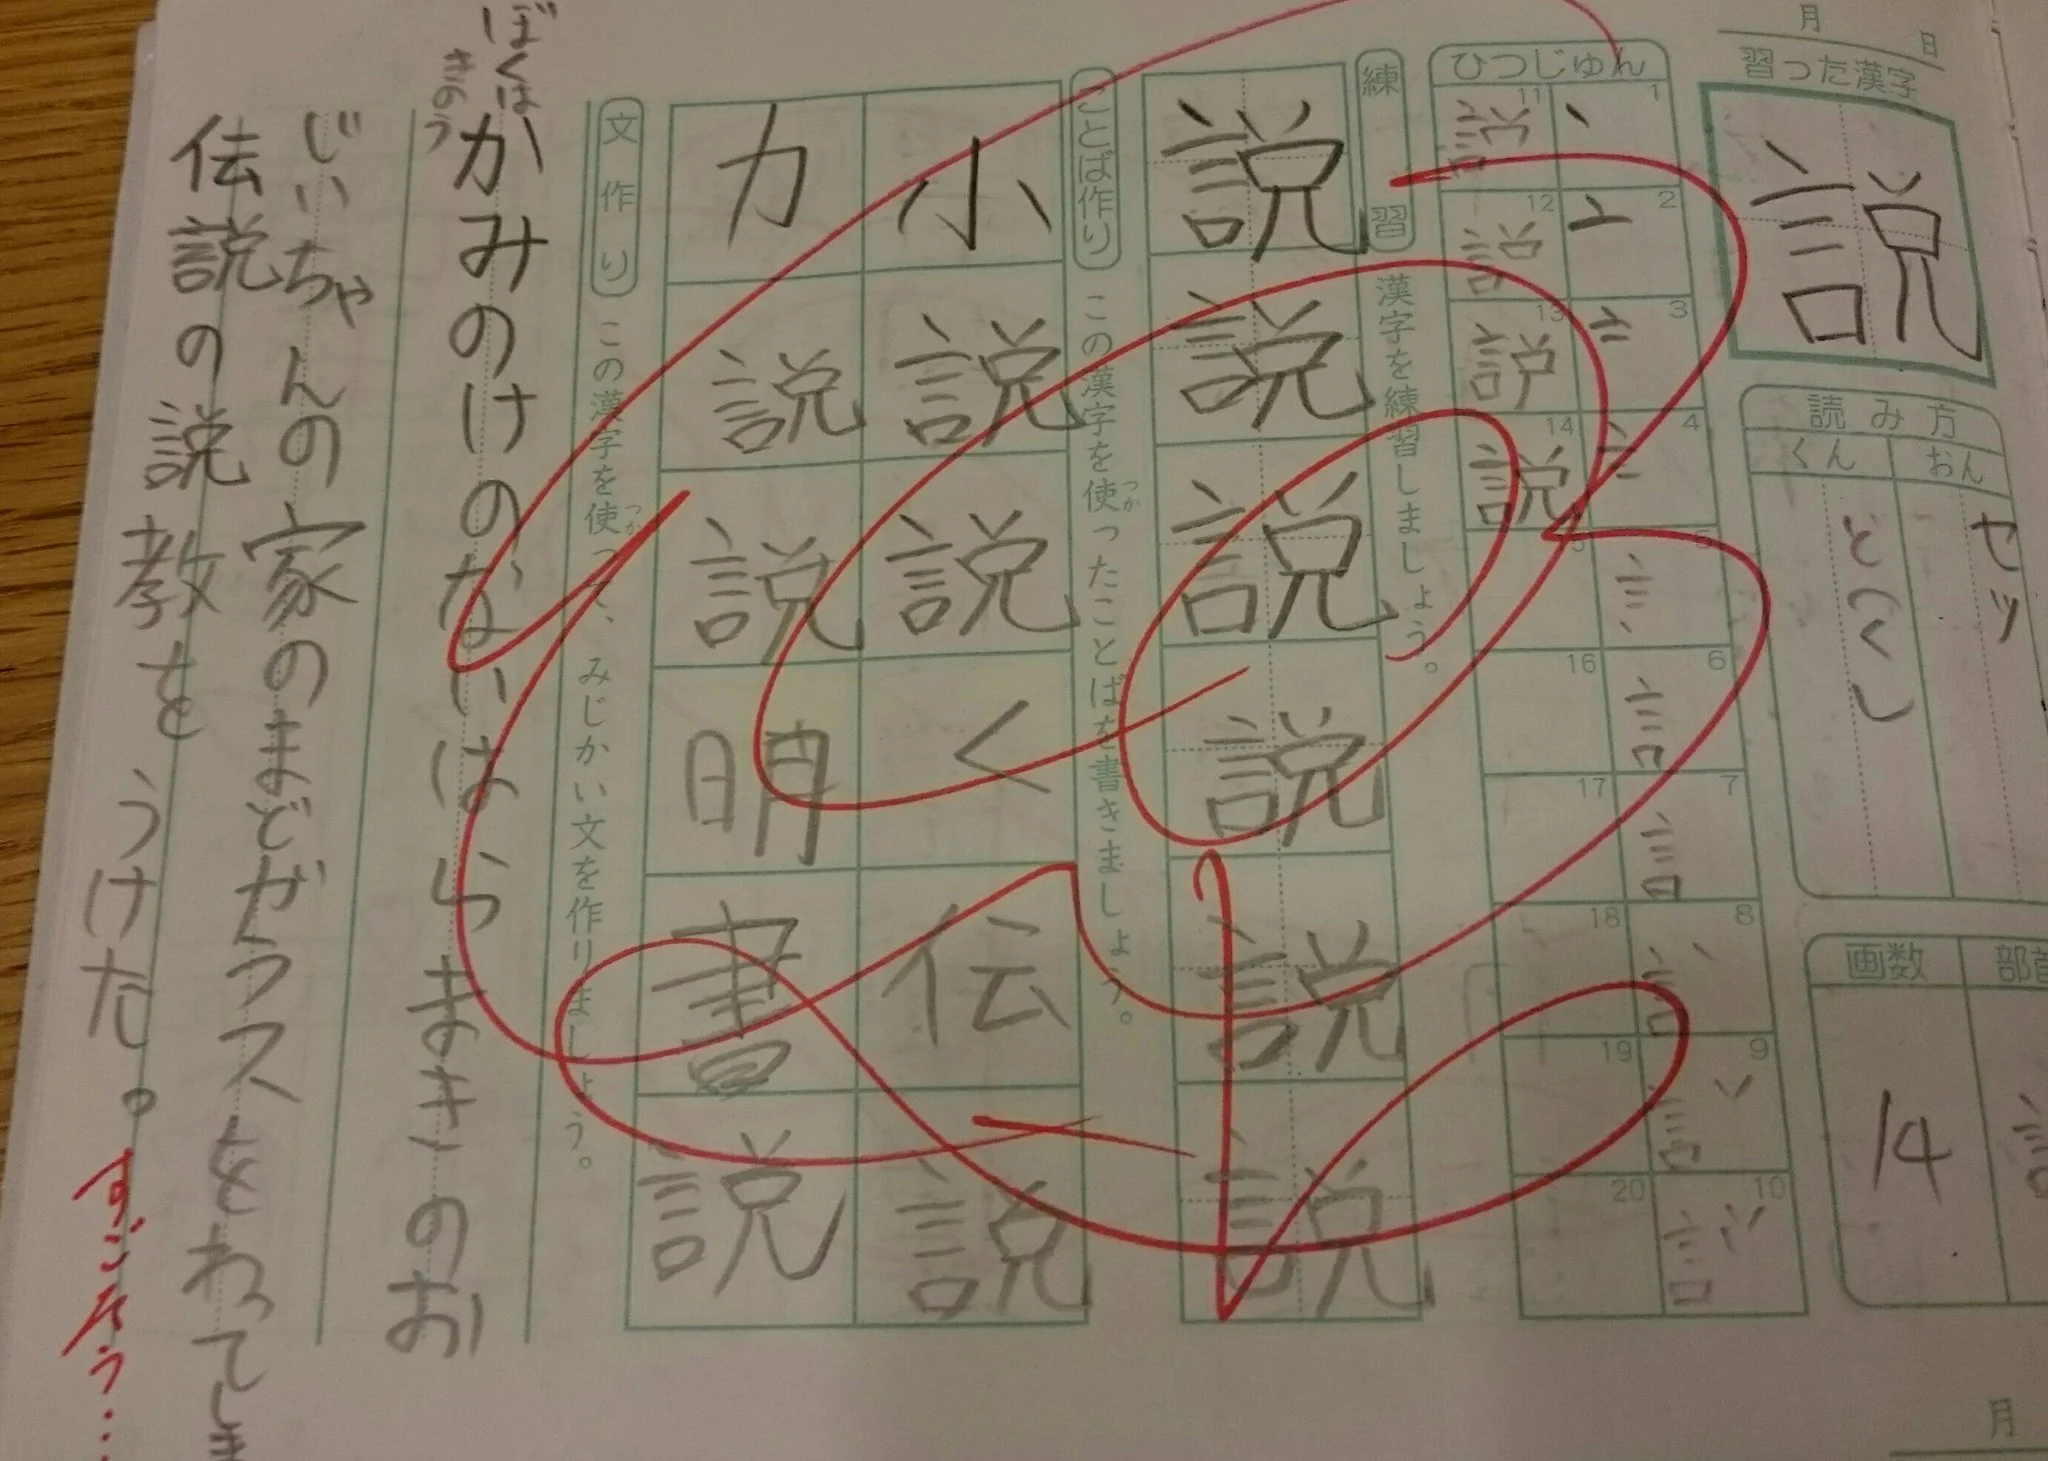 月 日
習った漢字
説
読み方
おん
くん
セツ
と(く)
画数
14
ひつじゅん
1
2
3
4
5
6
7
8
9
10
11
12
13
14
16
17
18
19
20
練習 漢字を練習しましょう。
説説説説説説
ことば作り この漢字を使ったことばを書きましょう。
つか
小説 説く 伝説
力説 説明書 説
文作り この漢字を使って、みじかい文を作りましょう。
つか
ぼくは
きのう
かみのけのないはらまきのお
じいちゃんの家のまどガラスをわってしま
伝説の説教をうけた。
すごそう…
月